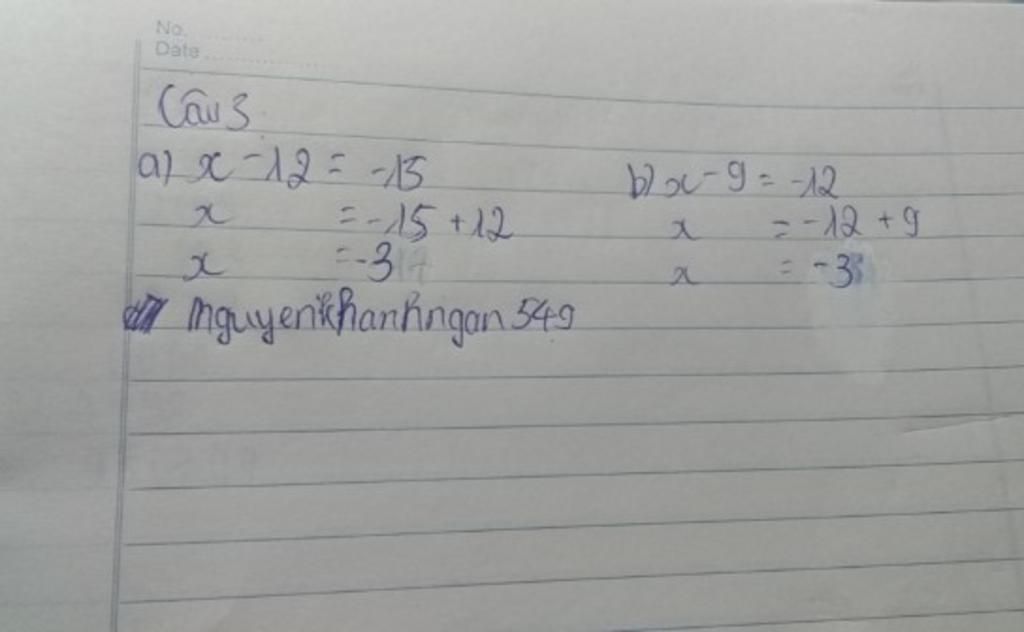 No. ............
Date ....................
Câu 3
a) x - 12 = -15
x = -15 + 12
x = -3
b) x - 9 = -12
x = -12 + 9
x = -3
nguyenkhanhngan549